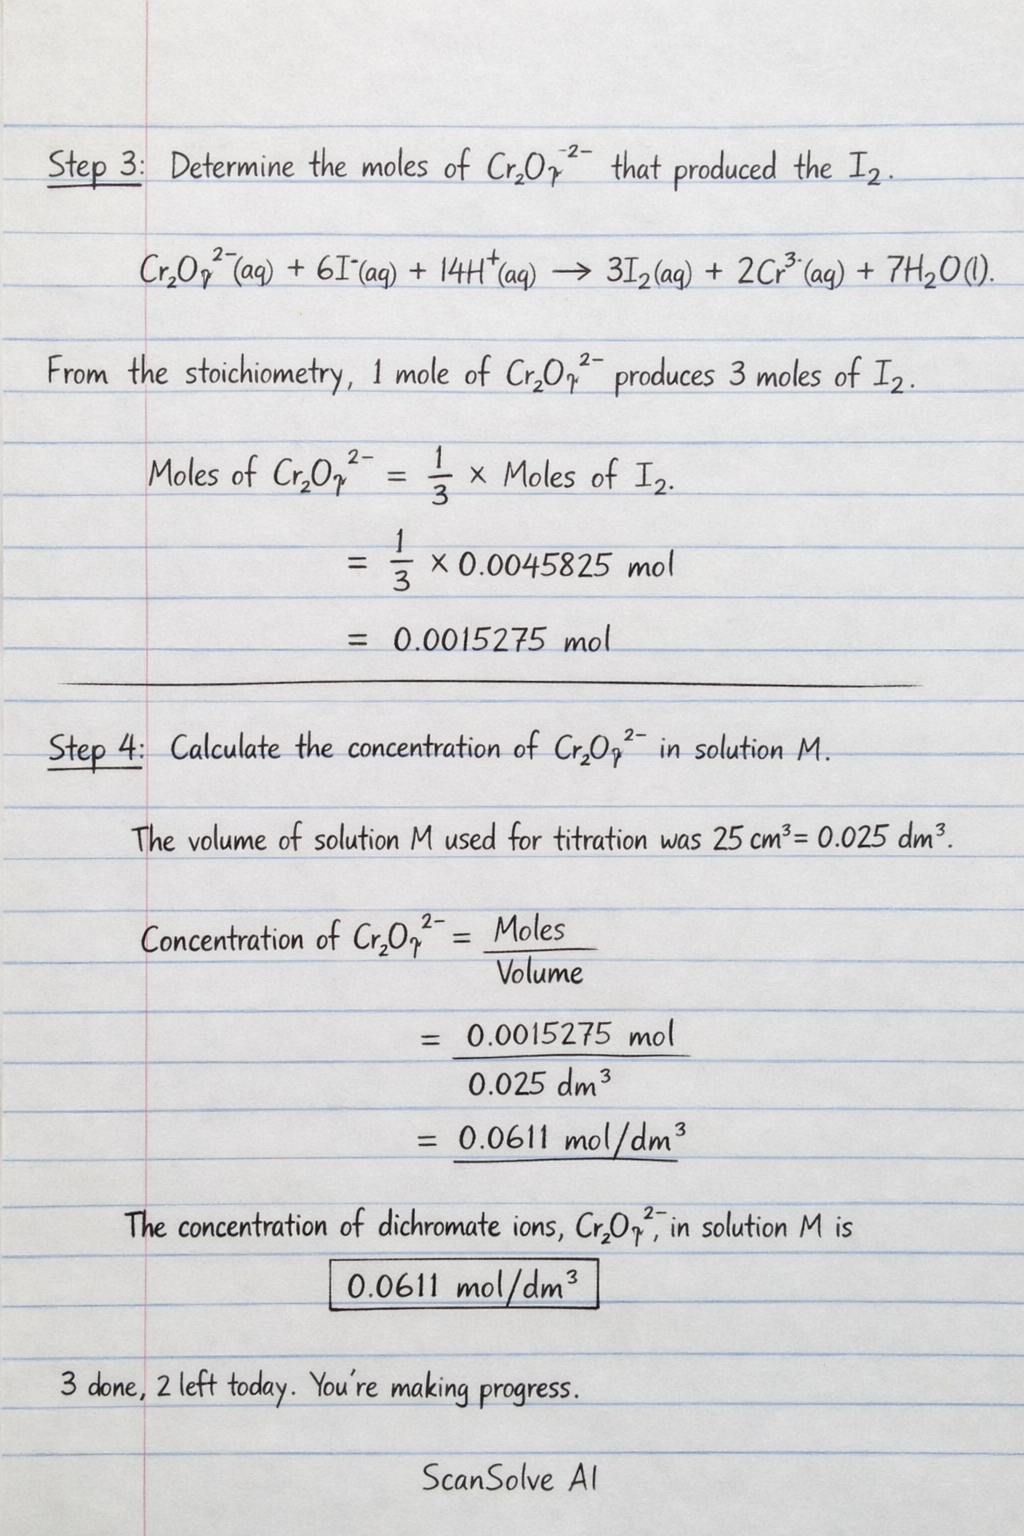 Step 3: Determine the moles of Cr₂O₇⁻²⁻ that produced the I₂.
Cr₂O₇²⁻(aq) + 6I⁻(aq) + 14H⁺(aq) → 3I₂(aq) + 2Cr³·(aq) + 7H₂O(l).
From the stoichiometry, 1 mole of Cr₂O₇²⁻ produces 3 moles of I₂.
Moles of Cr₂O₇²⁻ = 1/3 × Moles of I₂.
= 1/3 × 0.0045825 mol
= 0.0015275 mol
Step 4: Calculate the concentration of Cr₂O₇²⁻ in solution M.
The volume of solution M used for titration was 25 cm³ = 0.025 dm³.
Concentration of Cr₂O₇²⁻ = Moles / Volume
= 0.0015275 mol / 0.025 dm³
= 0.0611 mol/dm³
The concentration of dichromate ions, Cr₂O₇²⁻, in solution M is
0.0611 mol/dm³
3 done, 2 left today. You're making progress.
ScanSolve AI